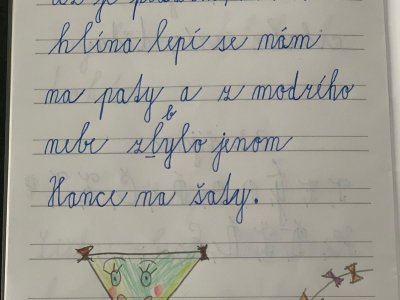 už je
hlína lepí se nám
na paty a z modrého
nebe zbylo jenom
Hance na šaty.